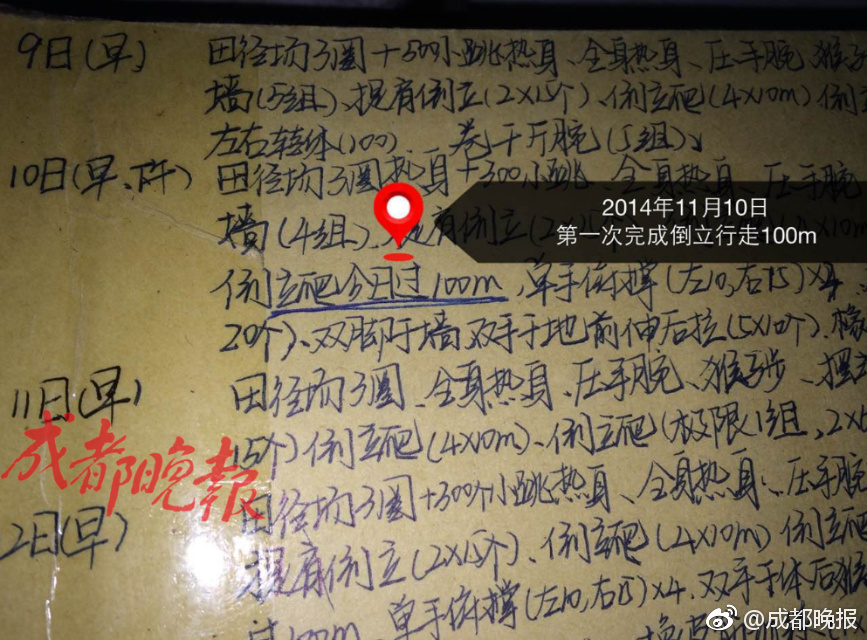 9日(早) 田径场3圈+300小跳热身、全身热身、压手腕、猴子
墙(5组)、提肩倒立(2×15个)、倒立爬(4×10m)倒
左右转体(100)、卷千斤腕(5组)、
10日(早、下午) 田径场3圈热身+300小跳、全身热身、压手腕
墙(4组)、提肩倒立(2×
2014年11月10日
第一次完成倒立行走100m
倒立爬今日过100m,单手俯撑(左10,右15)×4、
20个)、双脚于墙双手于地前伸后拉(5×10个)、橡
11日(早) 田径场3圈、全身热身、压手腕、猴子步、摆
15个)倒立爬(4×10m)、倒立爬(极限1组,2×
成都晚報
2日(早) 田径场3圈+300个小跳热身、全身热身、压手腕
提肩倒立(2×15个)、倒立爬(4×10m)倒立爬
过100m、单手俯撑(左10,右15)×4、双手于体后
@成都晚报